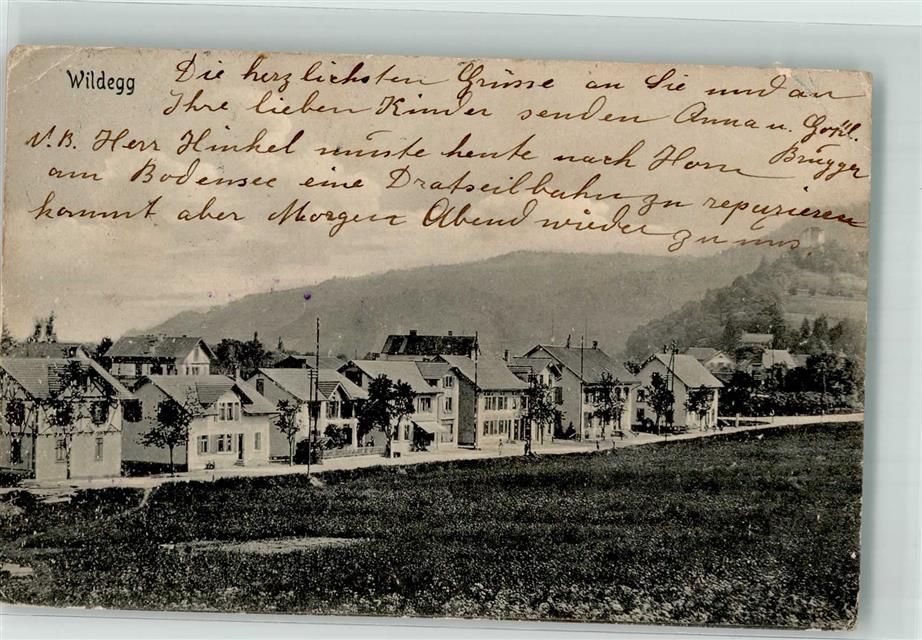 Wildegg
Die herzlichsten Grüsse an Sie und an
Ihre lieben Kinder senden Anna u.
Brugger
N.B. Herr Hinkel müste heute nach Horn
am Bodensee eine Dratseilbahn zu repurieren
kommt aber Morgen Abend wieder zu uns